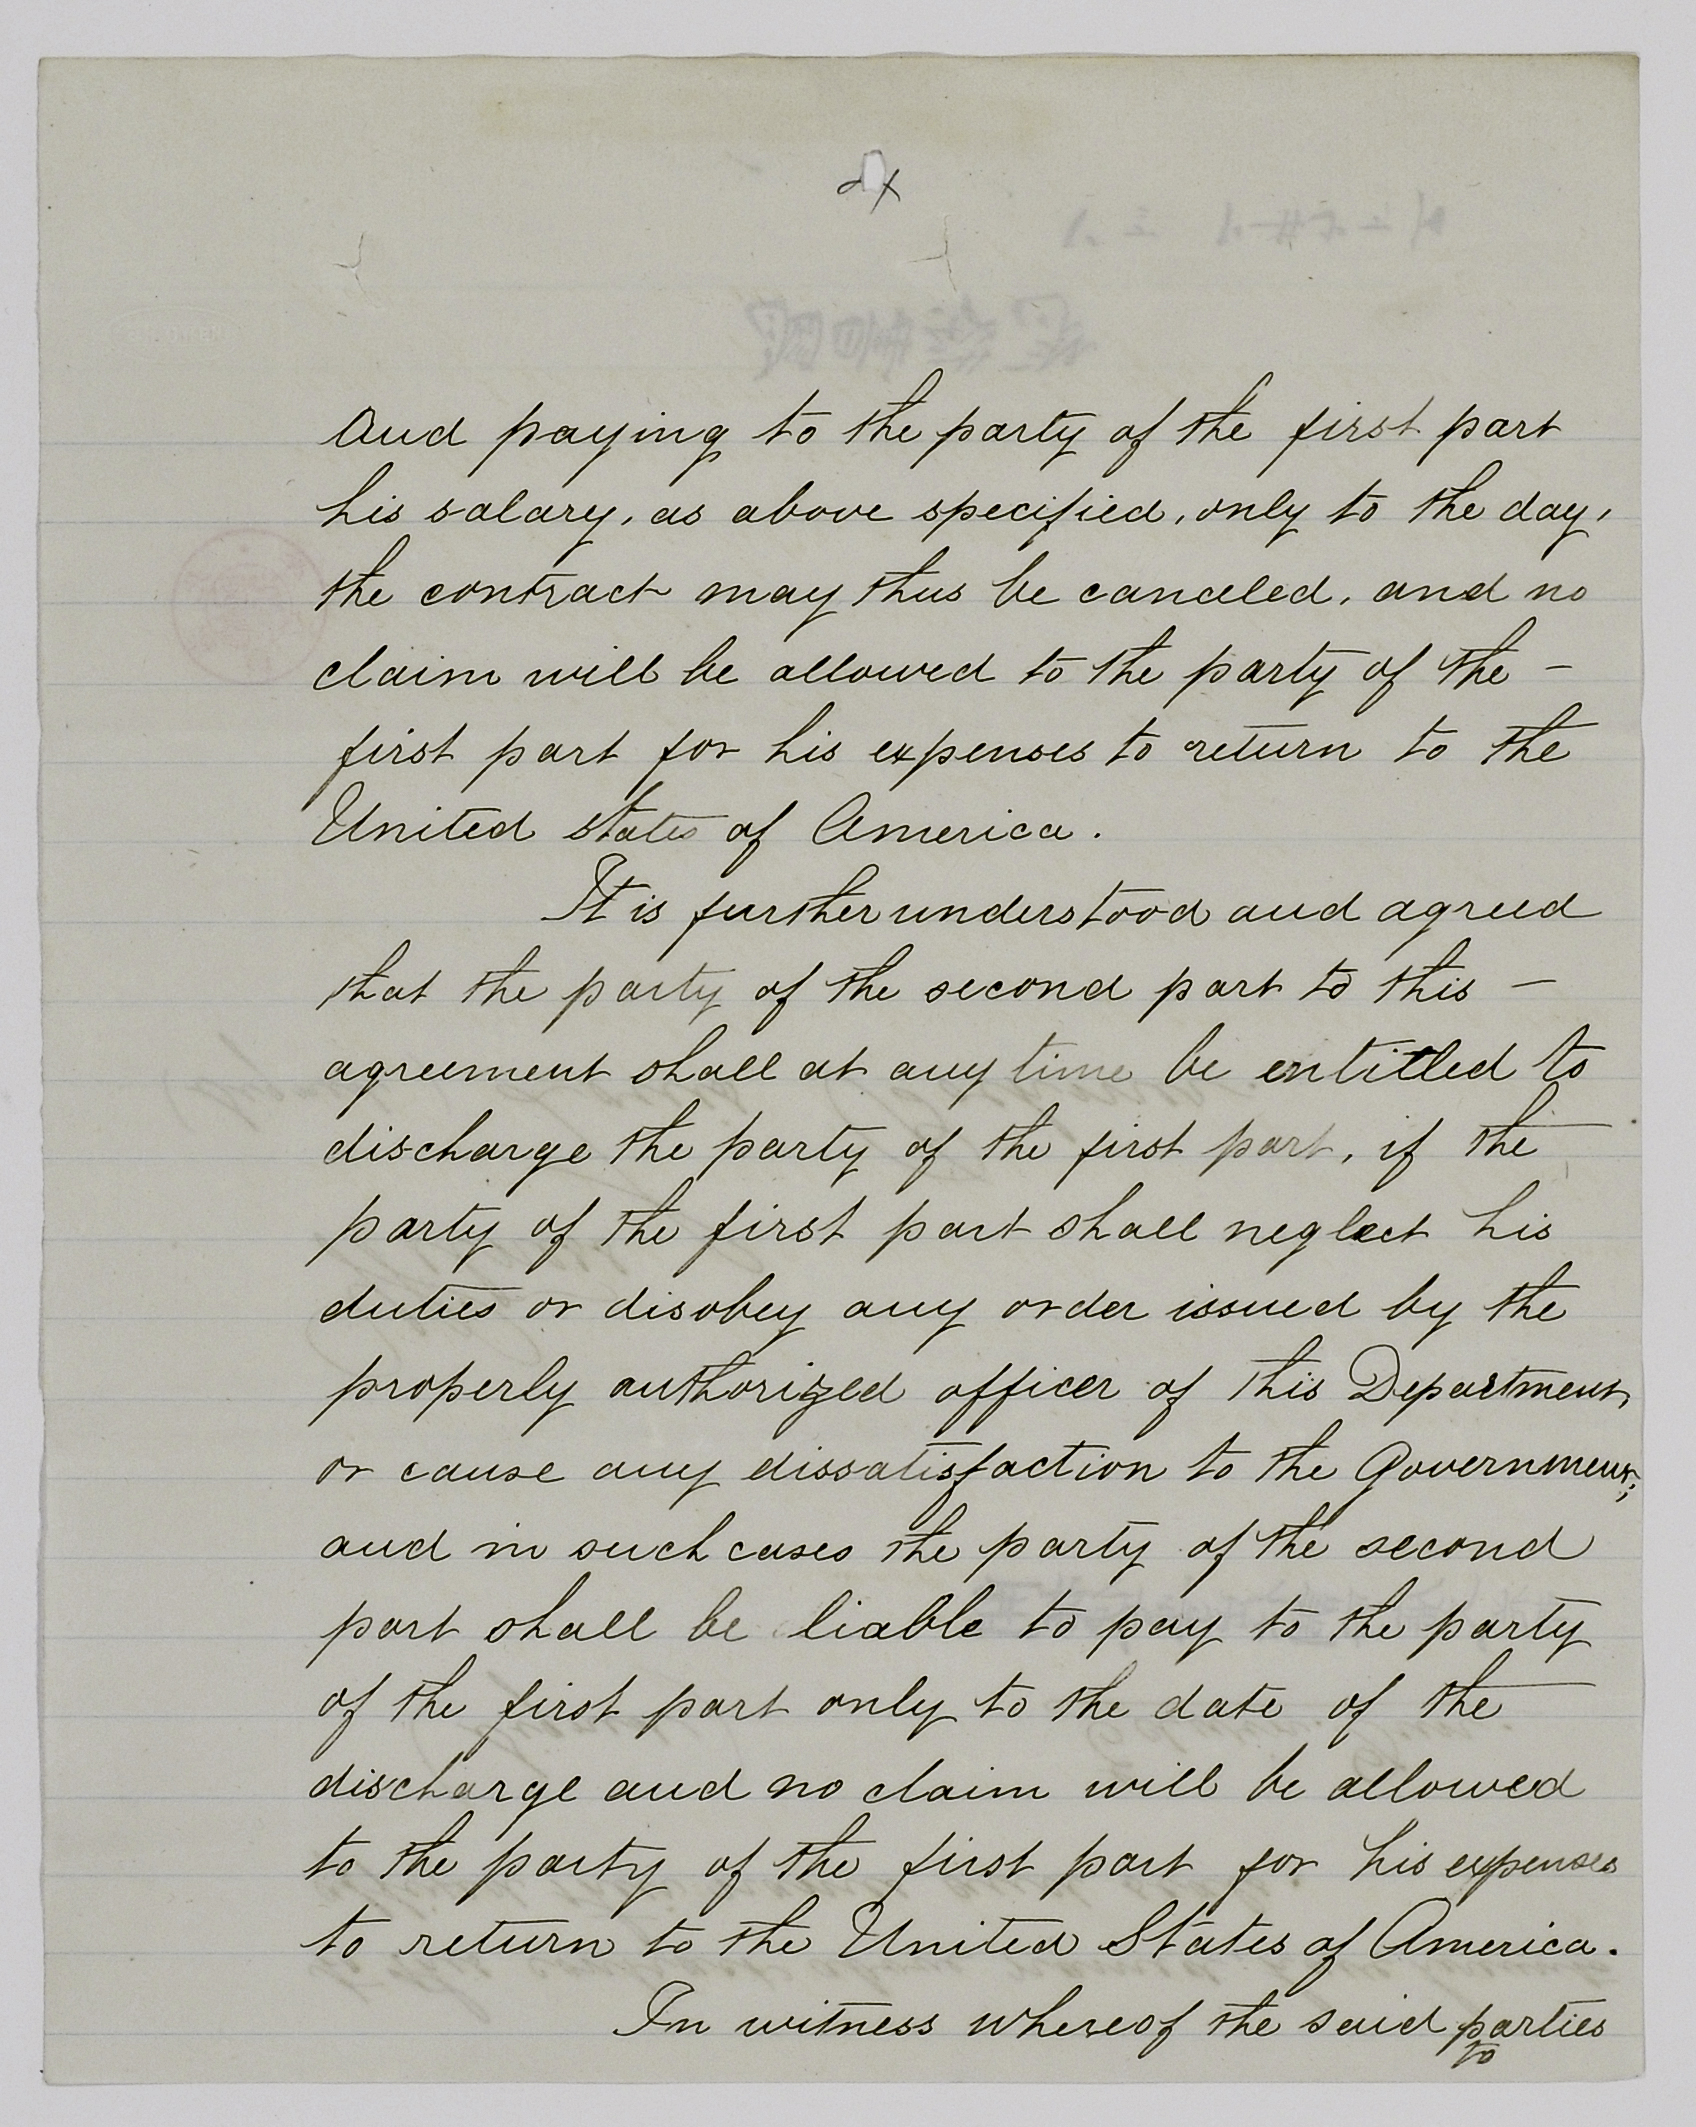 and paying to the party of the first part
his salary, as above specified, only to the day,
the contract may thus be canceled, and no
claim will be allowed to the party of the –
first part for his expenses to return to the
United states of America.
It is further understood and agreed
that the party of the second part to this –
agreement shall at any time be entitled to
discharge the party of the first part, if the
party of the first part shall neglect his
duties or disobey any order issued by the
properly authorized officer of this Department,
or cause any dissatisfaction to the Government;
and in such cases the party of the second
part shall be liable to pay to the party
of the first part only to the date of the
discharge and no claim will be allowed
to the party of the first part for his expenses
to return to the United States of America.
In witness whereof the said parties
to